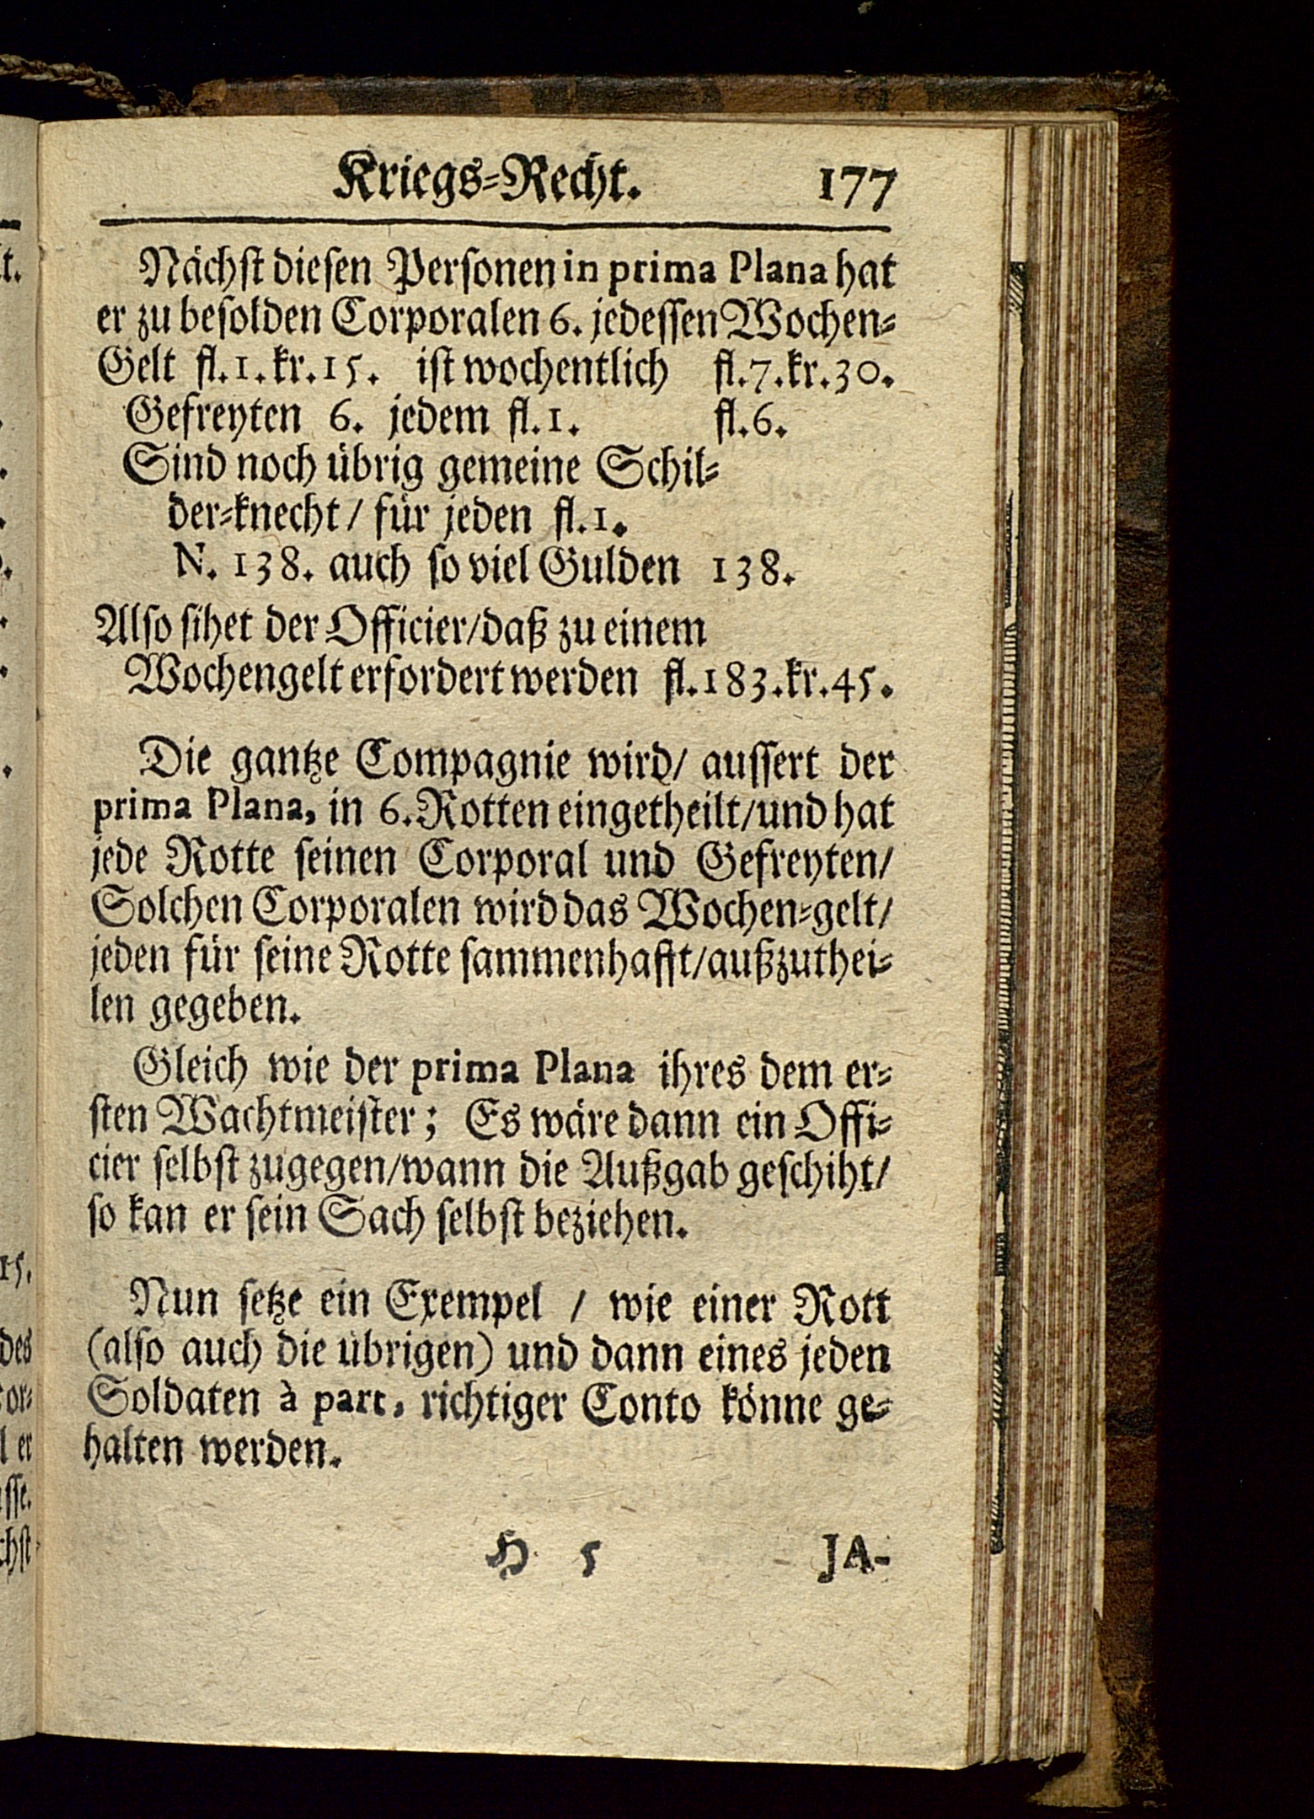 Kriegs-Recht. 177
Nächst diesen Personen in prima Plana hat
er zu besolden Corporalen 6. jedessen Wochen-
Gelt fl.1.kr.15. ist wochentlich fl.7.kr.30.
Gefreyten 6. jedem fl.1. fl.6.
Sind noch übrig gemeine Schil-
der-knecht / für jeden fl.1.
N. 138. auch so viel Gulden 138.
Also sihet der Officier/daß zu einem
Wochengelt erfordert werden fl.183.kr.45.
Die gantze Compagnie wird/ aussert der
prima Plana, in 6.Rotten eingetheilt/und hat
jede Rotte seinen Corporal und Gefreyten/
Solchen Corporalen wird das Wochen-gelt/
jeden für seine Rotte sammenhafft/außzuthei-
len gegeben.
Gleich wie der prima Plana ihres dem er-
sten Wachtmeister; Es wäre dann ein Offi-
cier selbst zugegen/wann die Außgab geschiht/
so kan er sein Sach selbst beziehen.
Nun setze ein Exempel / wie einer Rott
(also auch die übrigen) und dann eines jeden
Soldaten à part, richtiger Conto könne ge-
halten werden.
H 5 JA-